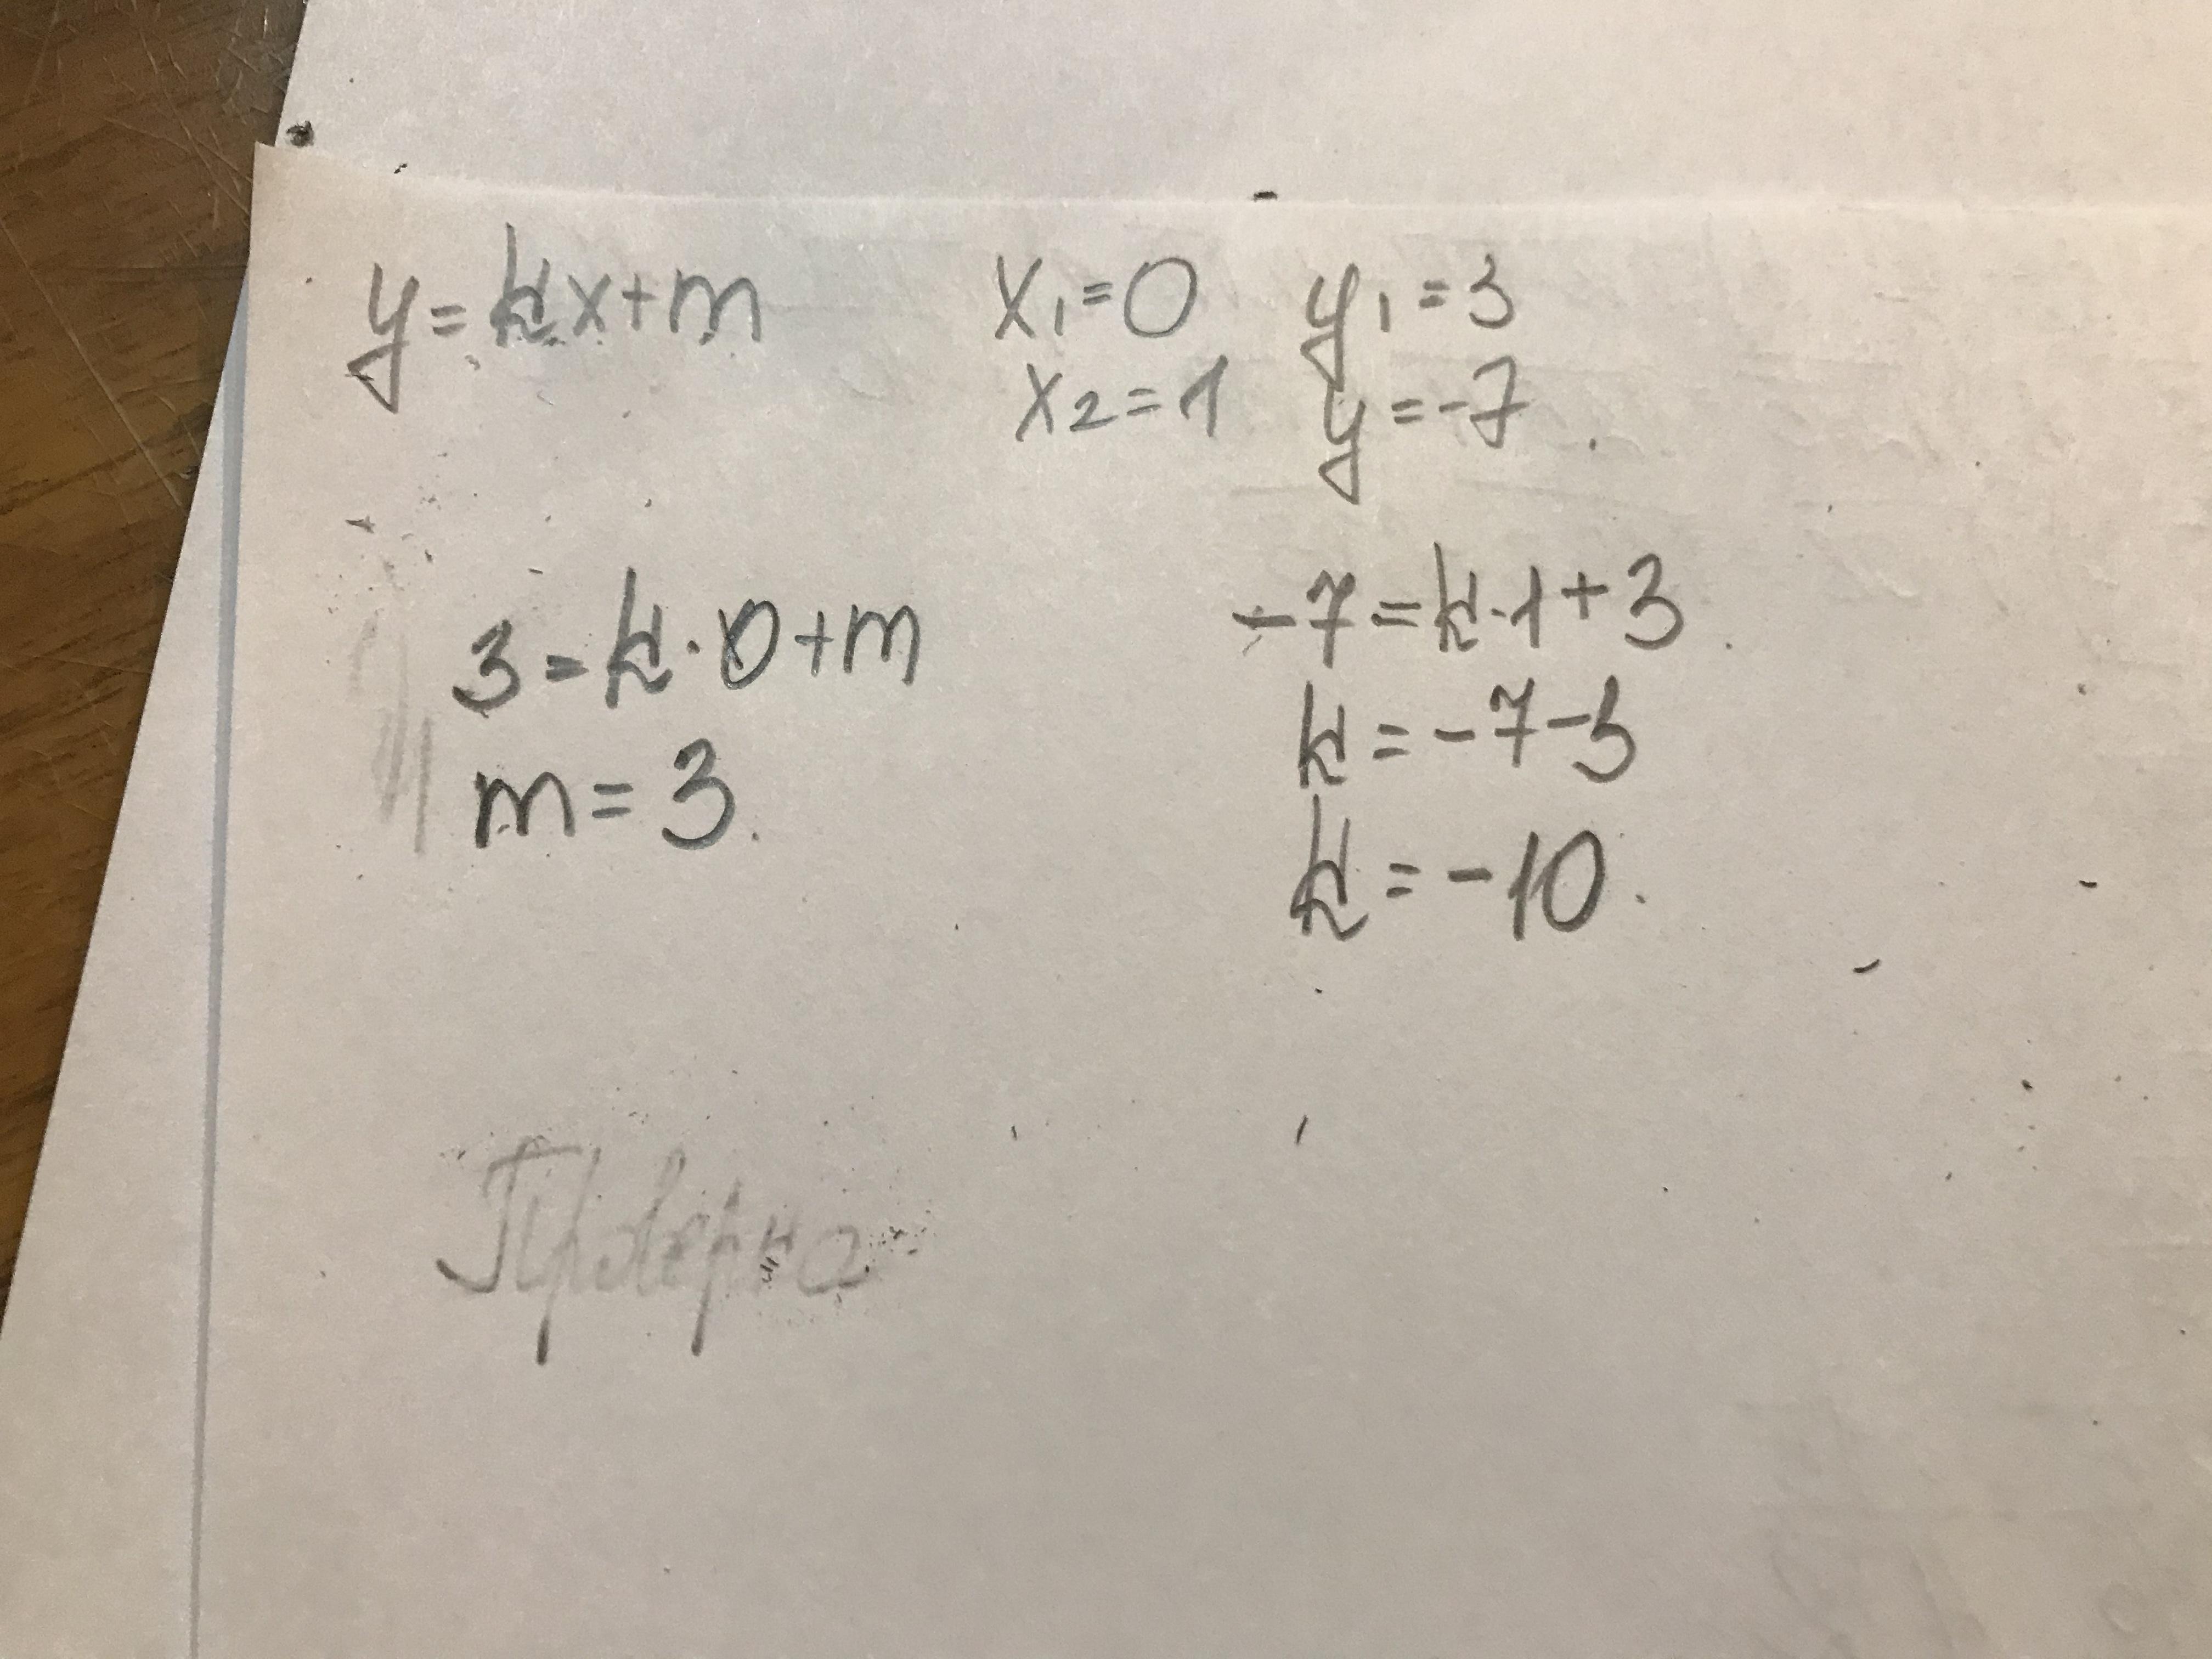 y=kx+m x₁=0 y₁=3
x₂=1 y=-7
3=k·0+m
m=3.
-7=k·1+3
k=-7-3
k=-10.
Проверка